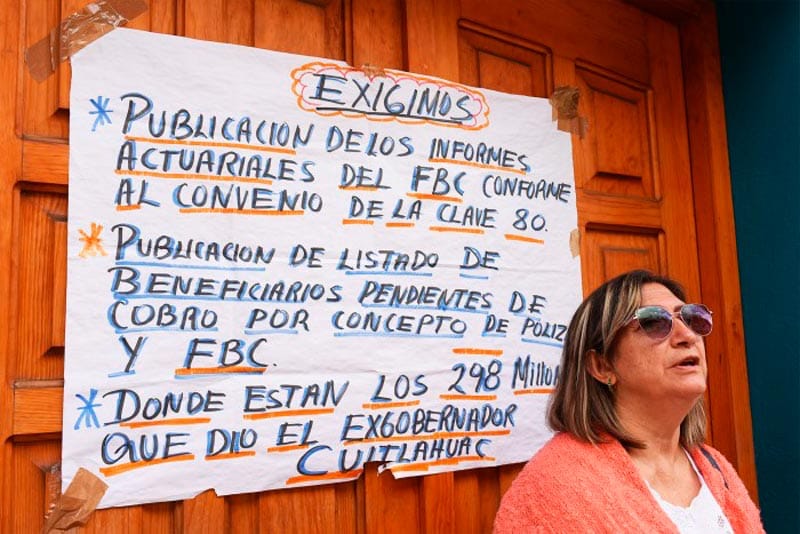 EXIGIMOS
* PUBLICACION DE LOS INFORMES
ACTUARIALES DEL FBC CONFORME
AL CONVENIO DE LA CLAVE 80.
* PUBLICACION DE LISTADO DE
BENEFICIARIOS PENDIENTES DE
COBRO POR CONCEPTO DE POLIZ
Y FBC.
* DONDE ESTAN LOS 298 MILLON
QUE DIO EL EXGOBERNADOR
CUITLAHUAC